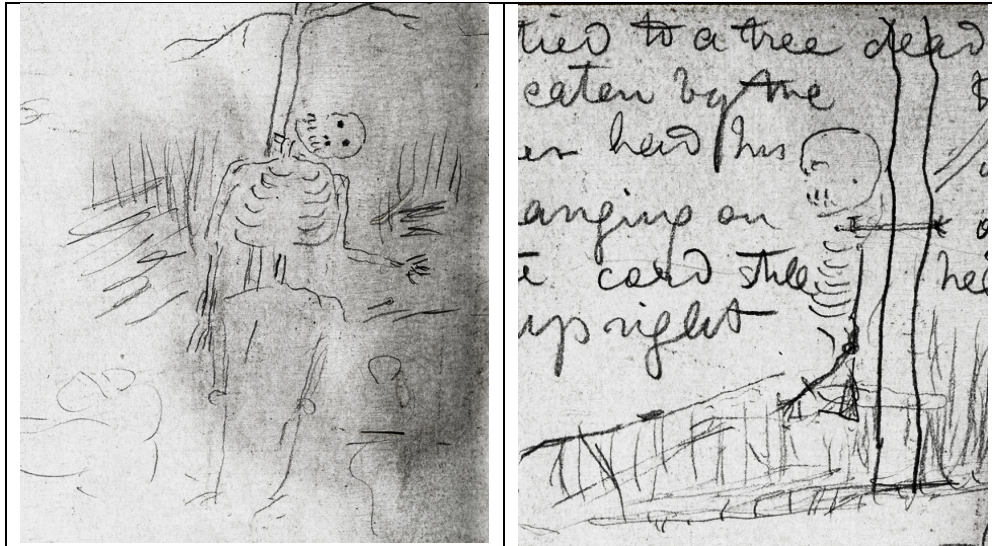 tied to a tree dead
eaten by the
head his
anging on
cord still
upright